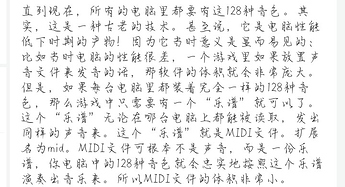 直到现在，所有的电脑里都要有这128种音色。其
实，这是一种古老的技术。甚至说，它是电脑性能
低下时期的产物！因为它当时意义是显而易见的：
比如当时电脑的性能很差，一个游戏里如果放置声
音文件来发音的话，那软件的体积就会非常庞大。
但是，如果每台电脑里都装着完全一样的128种音
色，那么游戏中只需要有一个“乐谱”就可以了。
这个“乐谱”无论在哪台电脑上都能被读取，发出
同样的声音来。这个“乐谱”就是MIDI文件。扩展
名为mid。MIDI文件可根本不是声音，而是一份乐
谱，你电脑中的128种音色就会忠实地按照这个乐谱
演奏出音乐来。所以MIDI文件的体积非常小。